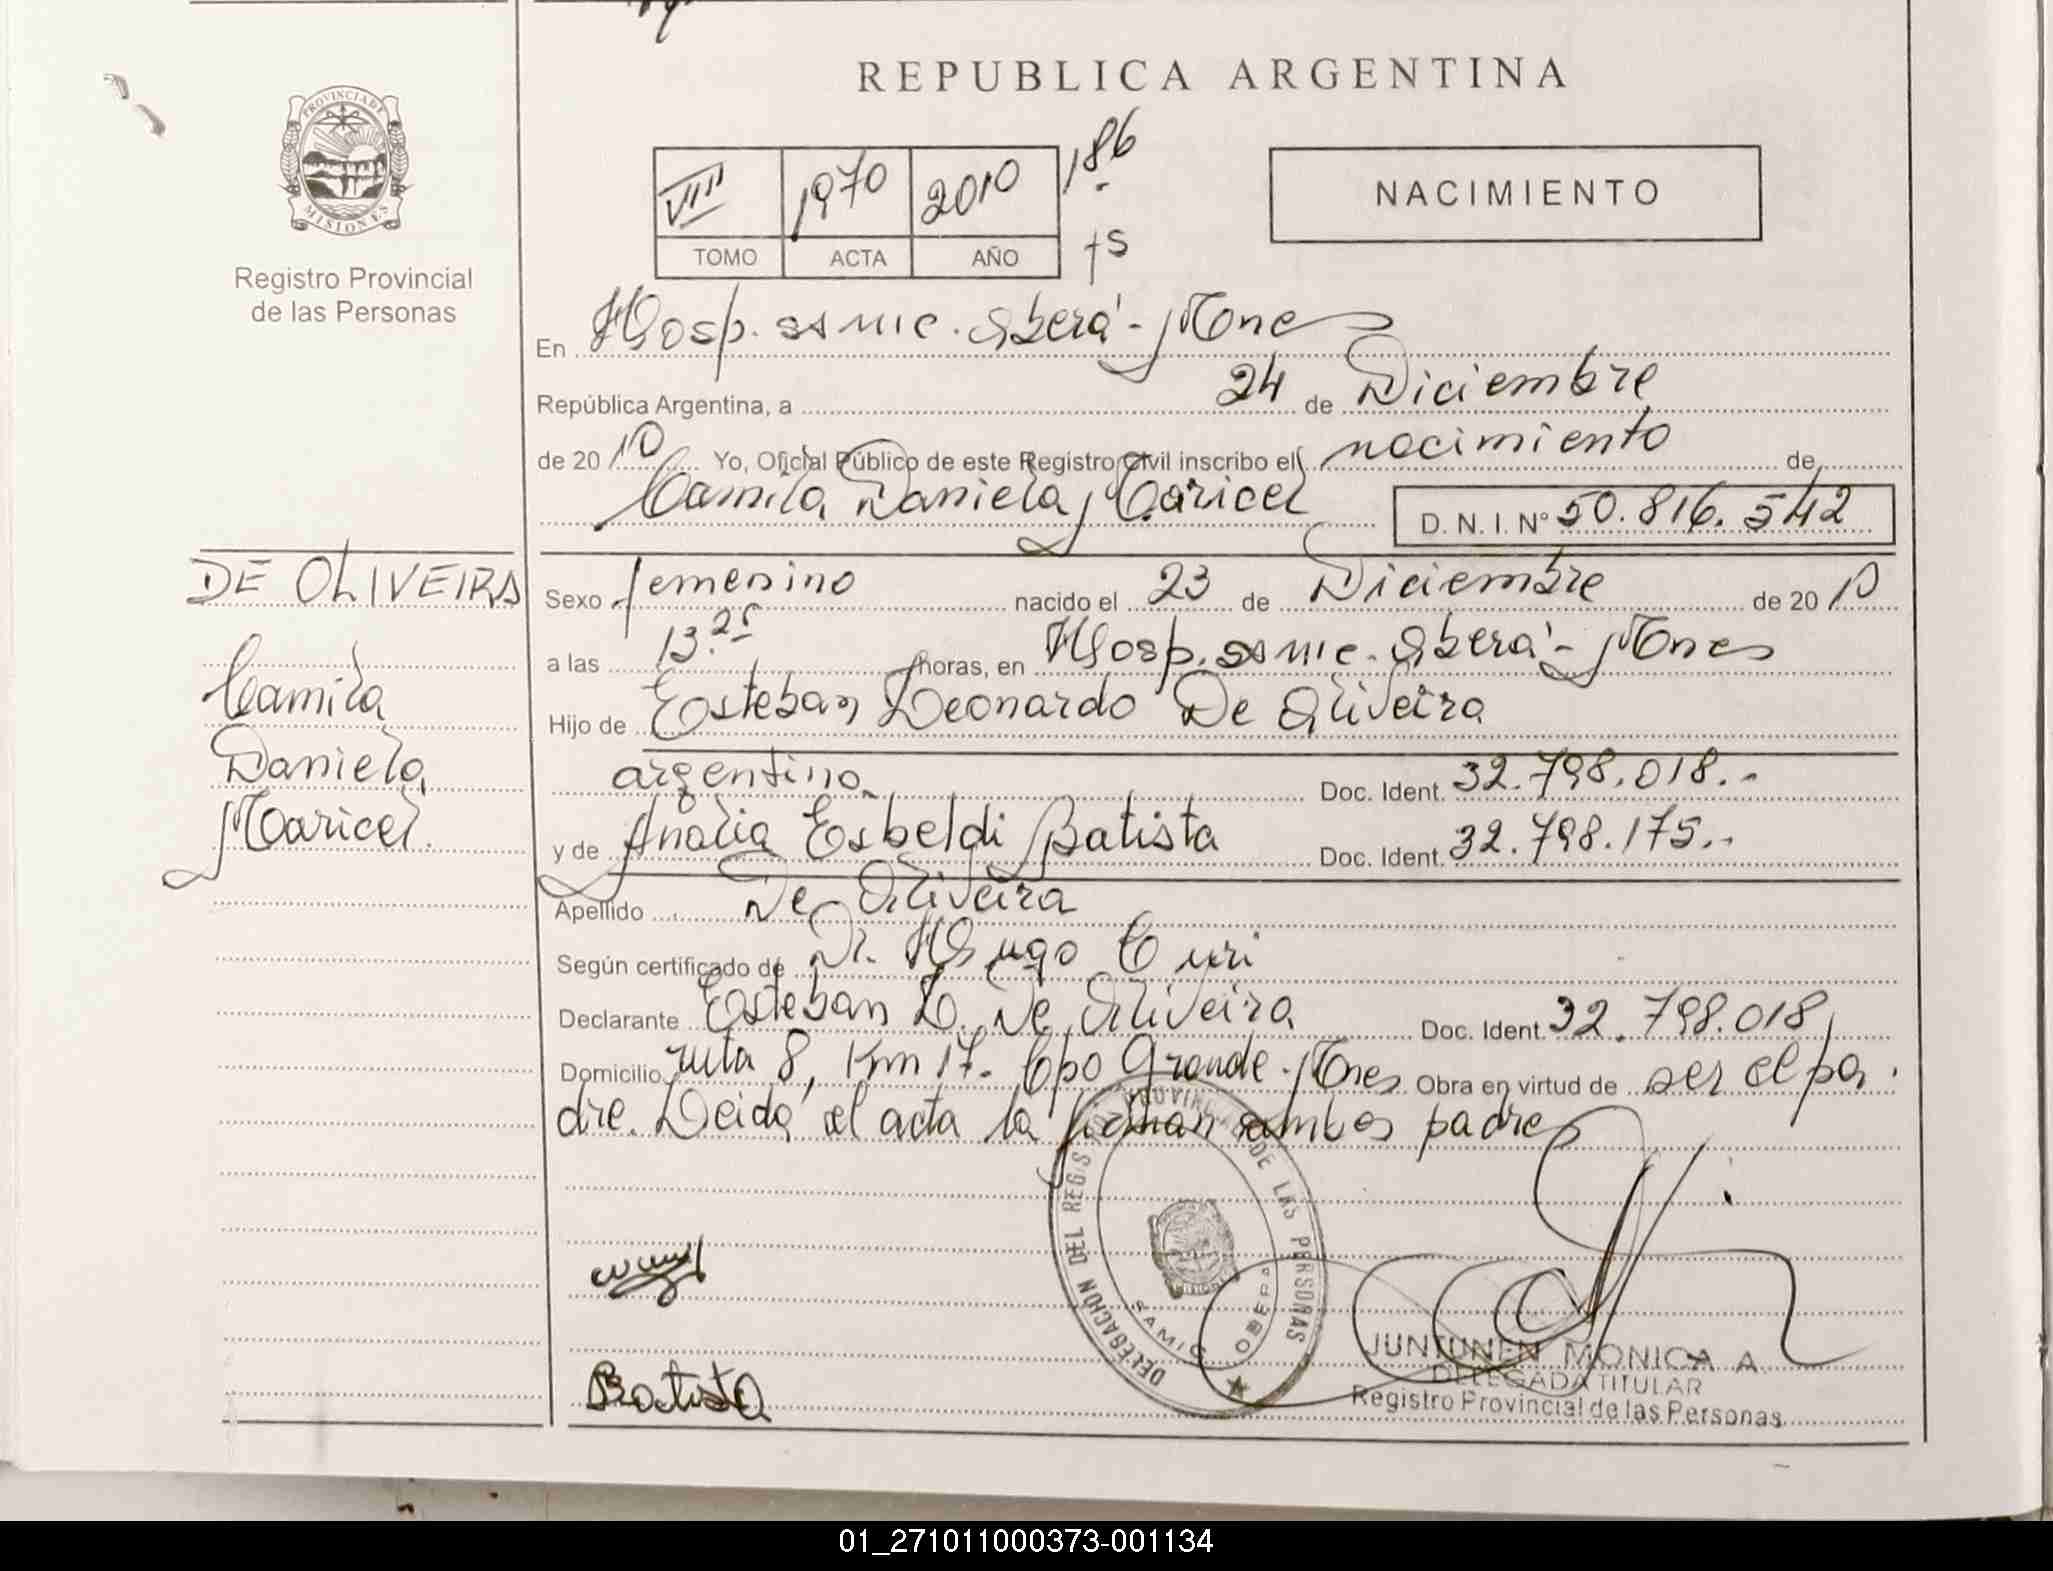 REPUBLICA ARGENTINA
PROVINCIA DE
MISIONES
Registro Provincial
de las Personas
VIII 1970 2010 186
TOMO ACTA AÑO fs
NACIMIENTO
En Hosp. samic. Oberá - Mnes
República Argentina, a 24 de Diciembre
de 2010 Yo, Oficial Público de este Registro Civil inscribo el nacimiento de
Camila Daniela Maricel D.N.I. Nº 50.816.542
DE OLIVEIRA
Camila
Daniela
Maricel.
Sexo femenino nacido el 23 de Diciembre de 2010
a las 13.25 horas, en Hosp. samic. Oberá - Mnes
Hijo de Esteban Leonardo De Oliveira
argentino Doc. Ident. 32.798.018.-
y de Analia Esbeldi Batista Doc. Ident. 32.798.175.-
Apellido De Oliveira
Según certificado de Dr. Hugo Curi
Declarante Esteban L. De Oliveira Doc. Ident. 32.798.018
Domicilio ruta 8, Km 17. Cpo Grande - Mnes Obra en virtud de ser el pa
dre. Leida el acta la firman ambos padres
DELEGACION DEL REGISTRO PROVINCIAL DE LAS PERSONAS
SAMIC OBERA
Batista
JUNTUNEN MONICA A.
DELEGADA TITULAR
Registro Provincial de las Personas
01_271011000373-001134